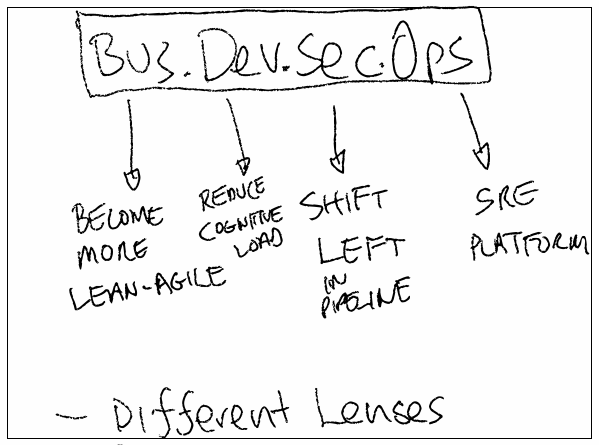 Bus.Dev.Sec.Ops
BECOME
MORE
LEAN-AGILE
REDUCE
COGNITIVE
LOAD
SHIFT
LEFT
IN
PIPELINE
SRE
PLATFORM
- Different Lenses